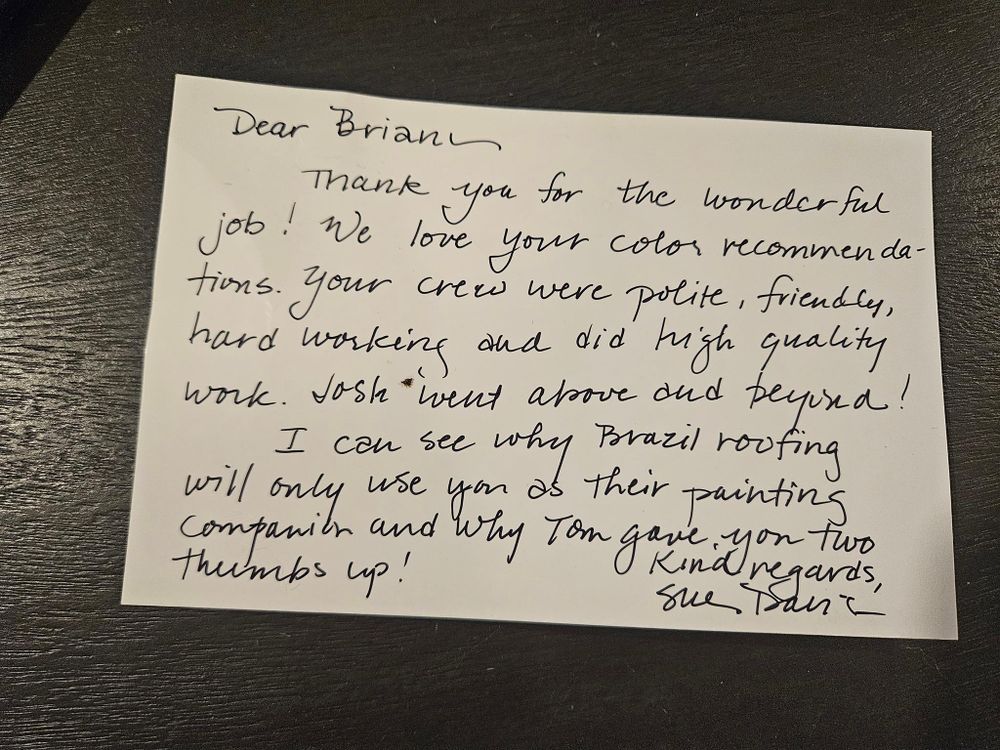 Dear Brian
Thank you for the wonderful
job! We love your color recommenda-
tions. Your crew were polite, friendly,
hard working and did high quality
work. Josh went above and beyond!
I can see why Brazil roofing
will only use you as their painting
companion and why Tom gave you two
thumbs up!
Kind regards,
Sue